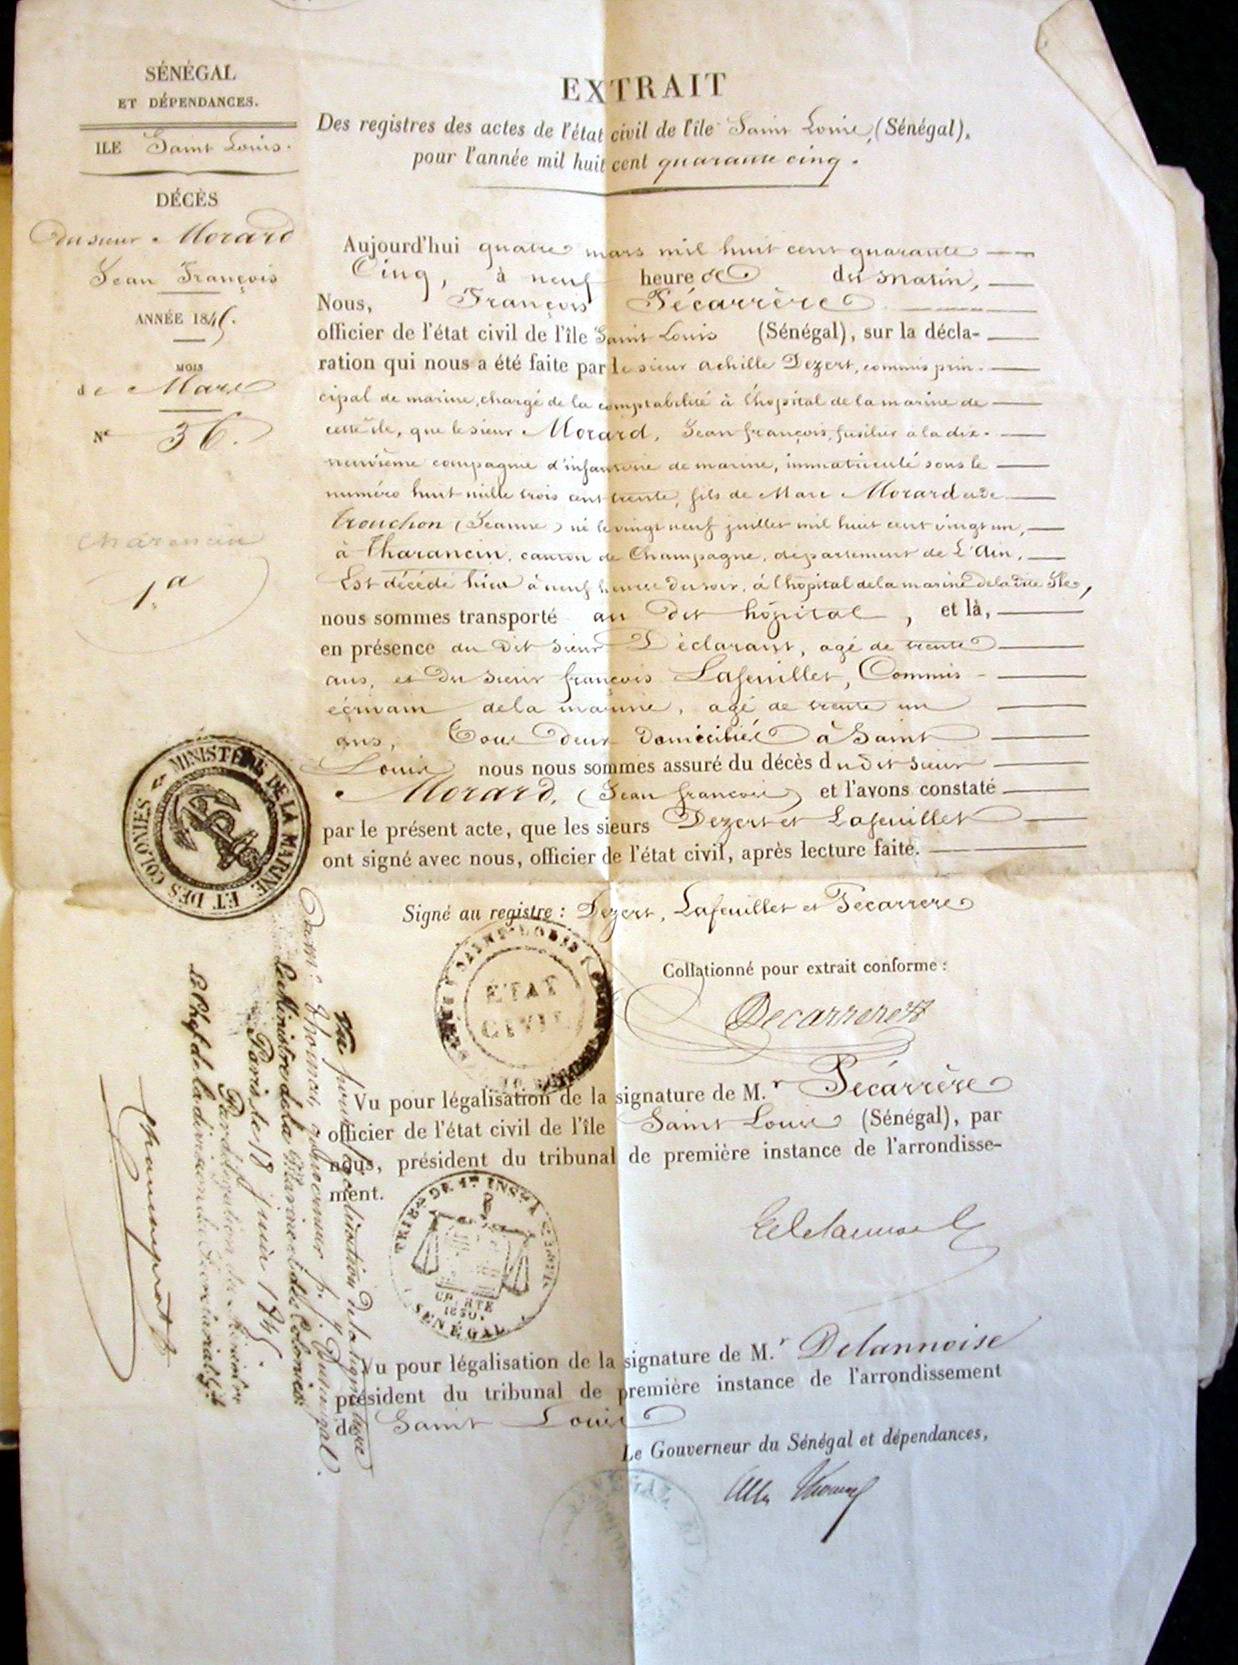 SÉNÉGAL
ET DÉPENDANCES.
ILE Saint Louis.
DÉCÈS
du sieur Morard
Jean François
ANNÉE 1845.
MOIS
de Mars
N° 36.
Charancin
1.a
EXTRAIT
Des registres des actes de l'état civil de l'île Saint Louis, (Sénégal),
pour l'année mil huit cent quarante cinq.
Aujourd'hui quatre mars mil huit cent quarante
Cinq, à neuf heures du matin,
Nous, François Pécarrère
officier de l'état civil de l'île Saint Louis (Sénégal), sur la décla-
ration qui nous a été faite par le sieur Achille Dezert, commis prin-
cipal de marine, chargé de la comptabilité à l'hopital de la marine de
cette île, que le sieur Morard, Jean françois, fusilier à la dix-
neuvième compagnie d'infanterie de marine, immatriculé sous le
numéro huit mille trois cent trente, fils de Marc Morard et de
trouchon (Jeanne) né le vingt neuf juillet mil huit cent vingt un,
à Tharancin, canton de Champagne, département de L'Ain,
Est décédé hier à neuf heures du soir, à l'hôpital de la marine de la dite Ile,
nous sommes transporté au dit hôpital, et là,
en présence du dit sieur Déclarant, agé de trente
ans, et du sieur françois Lafeuillet, Commis
écrivain de la marine, agé de trente un
ans, Tous deux domiciliés à Saint
Louis nous nous sommes assuré du décès du dit sieur
Morard, (Jean françois) et l'avons constaté
par le présent acte, que les sieurs Dezert et Lafeuillet
ont signé avec nous, officier de l'état civil, après lecture faite.
Signé au registre : Dezert, Lafeuillet et Pécarrère
MINISTÈRE DE LA MARINE ET DES COLONIES
ETAT
CIVIL
Collationné pour extrait conforme :
Pécarrère
Vu pour légalisation de la signature de M.r Pécarrère
officier de l'état civil de l'île Saint Louis (Sénégal), par
nous, président du tribunal de première instance de l'arrondisse-
ment.
Delannoise
CHARTE
1830.
SÉNÉGAL
Vu pour légalisation de la signature de M.r Delannoise
président du tribunal de première instance de l'arrondissement
de Saint Louis
Le Gouverneur du Sénégal et dépendances,
Thomas
Vu pour légalisation de la signature
de M.r Thomas, gouverneur p. i. du Sénégal.
Le Ministre de la Marine et des Colonies
Paris, le 18 juin 1845
Par délégation du Ministre
Le Chef de la division du Secrétariat